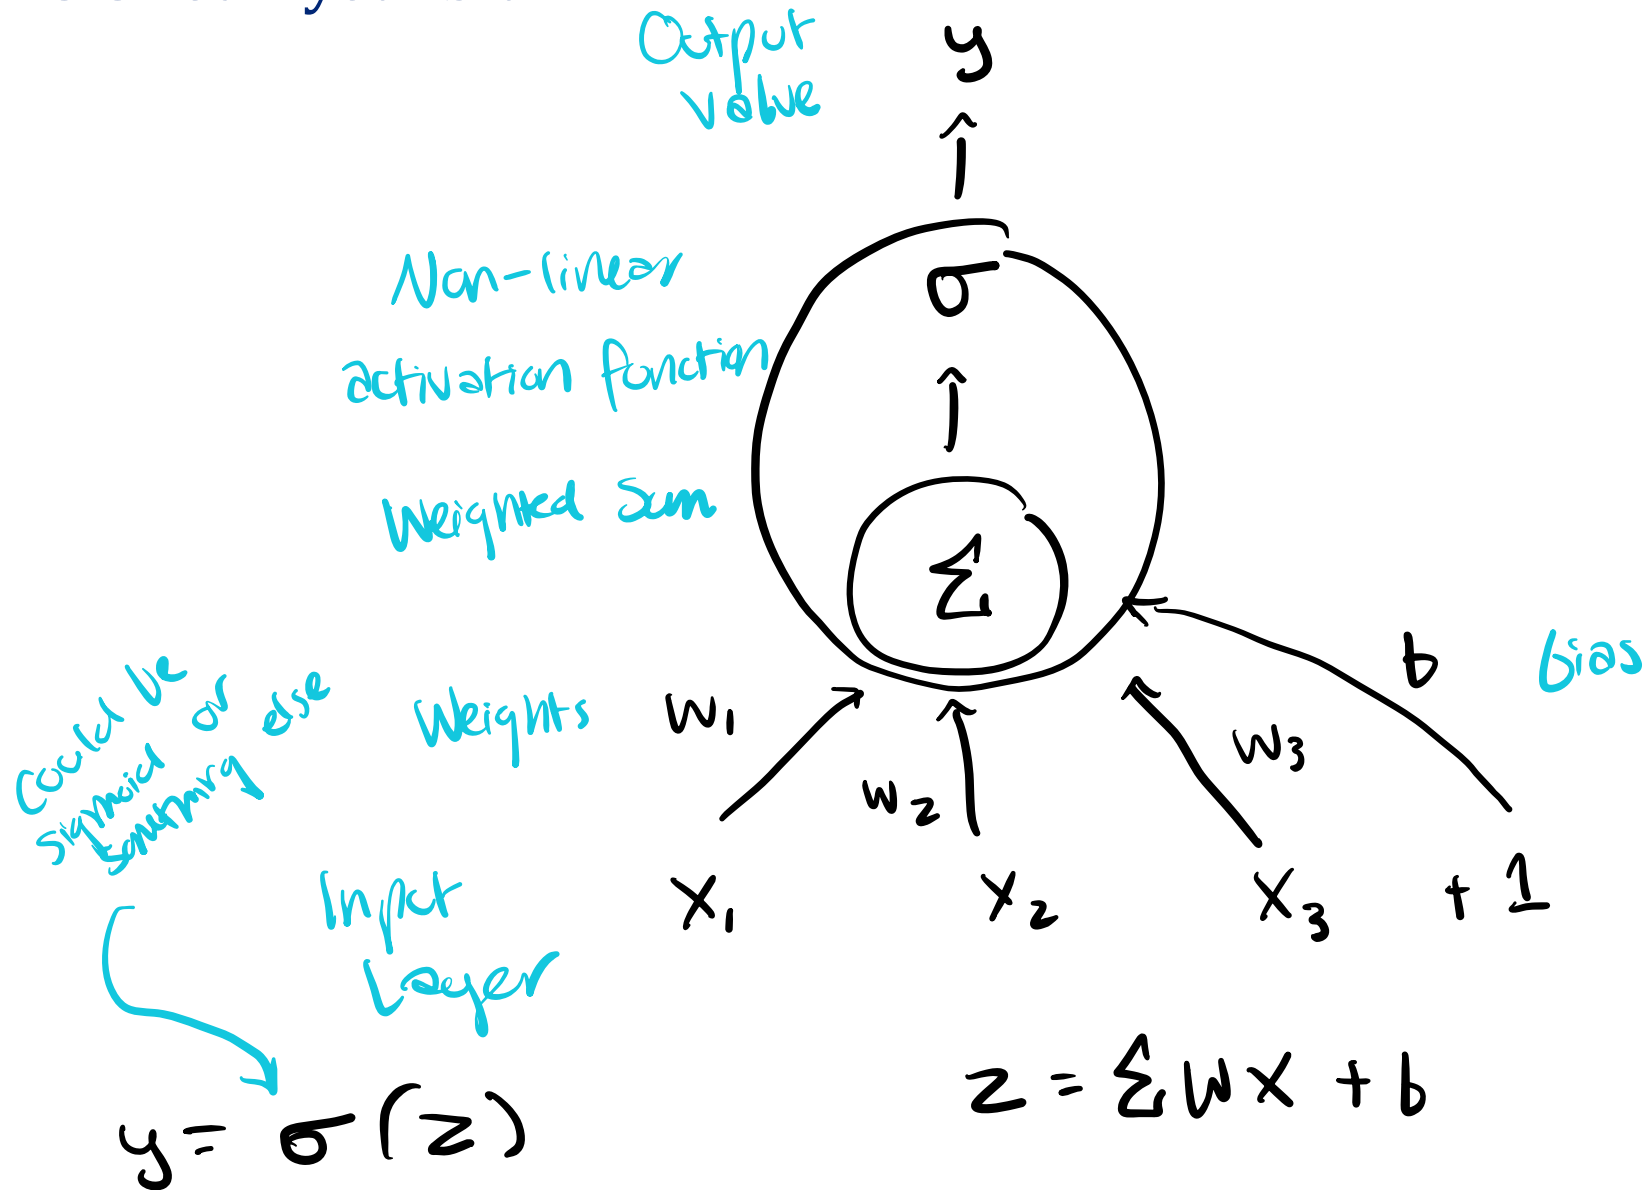 Output
value
y
Non-linear
σ
activation function
Weighted Sum
Σ
Could be
sigmoid or
something else
Weights
w₁
w₂
w₃
b
bias
Input
Layer
x₁
x₂
x₃
+1
y = σ(z)
z = Σwx + b